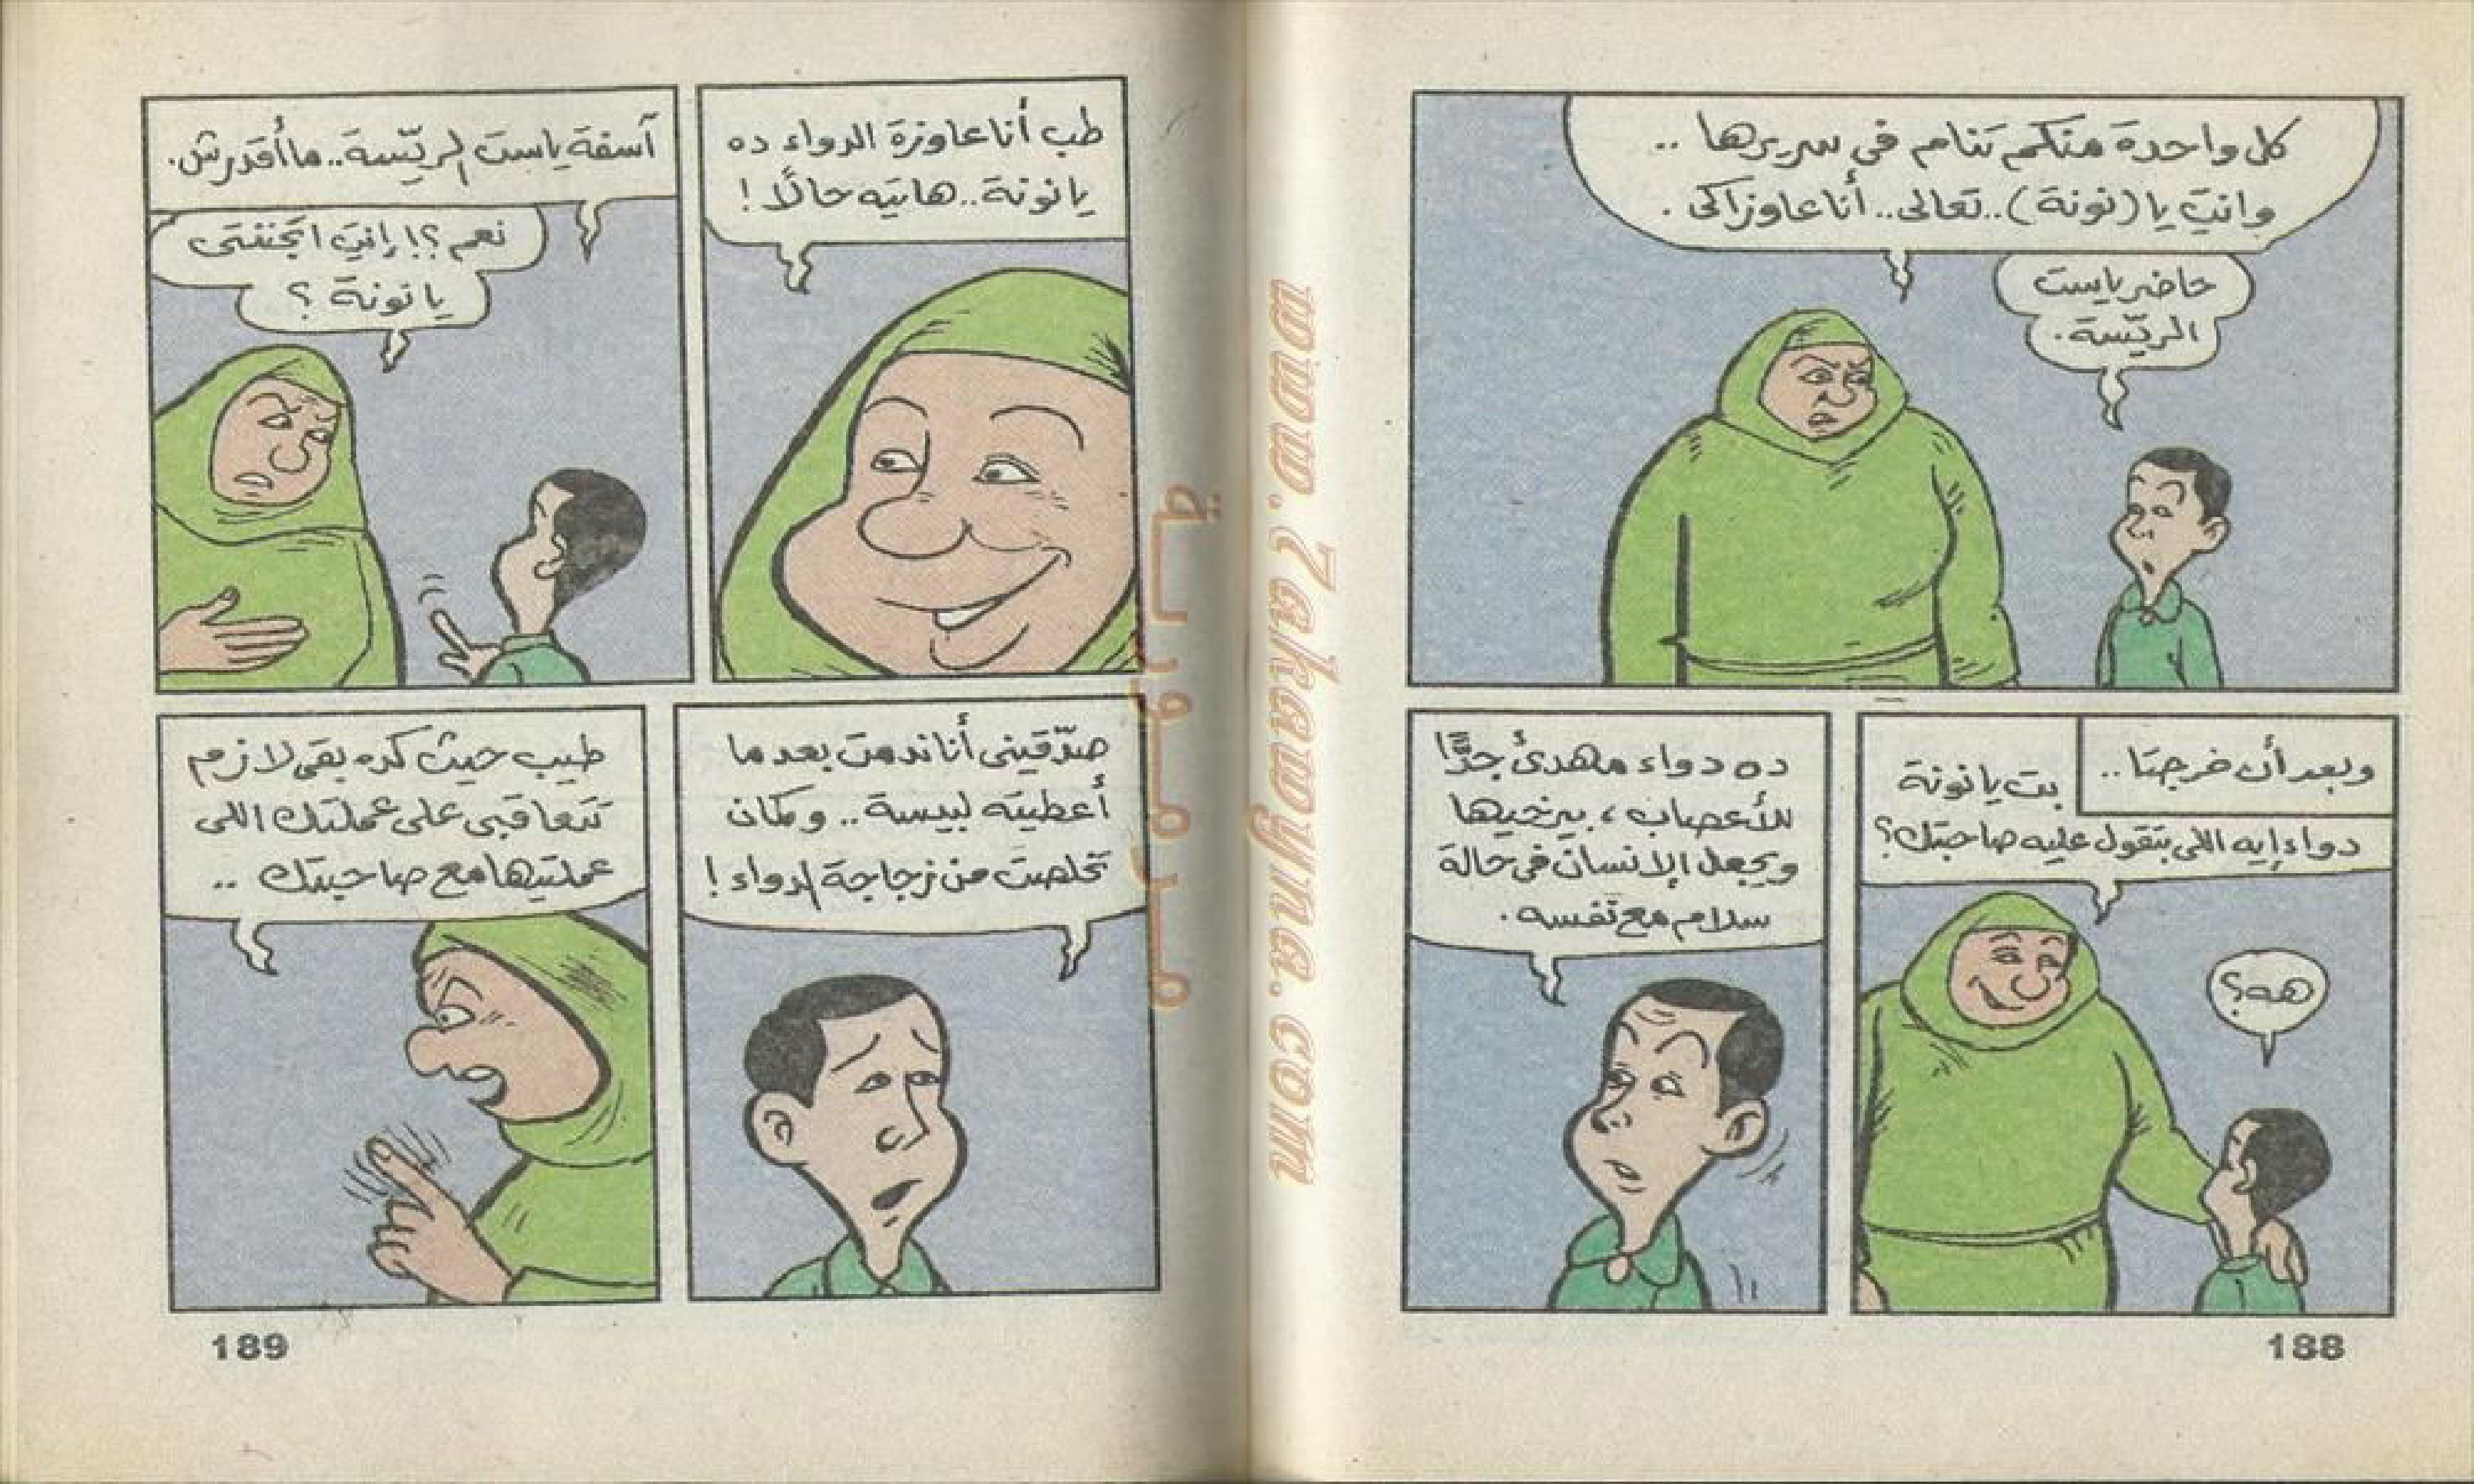 كل واحدة منكم تنام فى سريرها ..
وانتِ يا (نونة) .. تعالى .. أنا عاوزاكى .
حاضر ياست
الريّسة .
وبعد أن خرجتا ..
بت يا نونة
دواء إيه اللى بتقول عليه صاحبتك؟
هه؟
ده دواء مهدئ جدًّا
للأعصاب ، بيرخيها
ويجعل الإنسان فى حالة
سلام مع نفسه .
188
طب أنا عاوزة الدواء ده
يا نونة .. هاتيه حالًا !
آسفة ياست الريّسة .. ما أقدرش .
نعم ؟! إنتِ اتجننتى
يا نونة ؟
صدّقينى أنا ندمت بعد ما
أعطيته لبيسة .. وكمان
تخلصت من زجاجة الدواء !
طيب حيث كده بقى لازم
تتعاقبى على عملتك اللى
عملتيها مع صاحبتك ..
189
www.Zakawyna.com